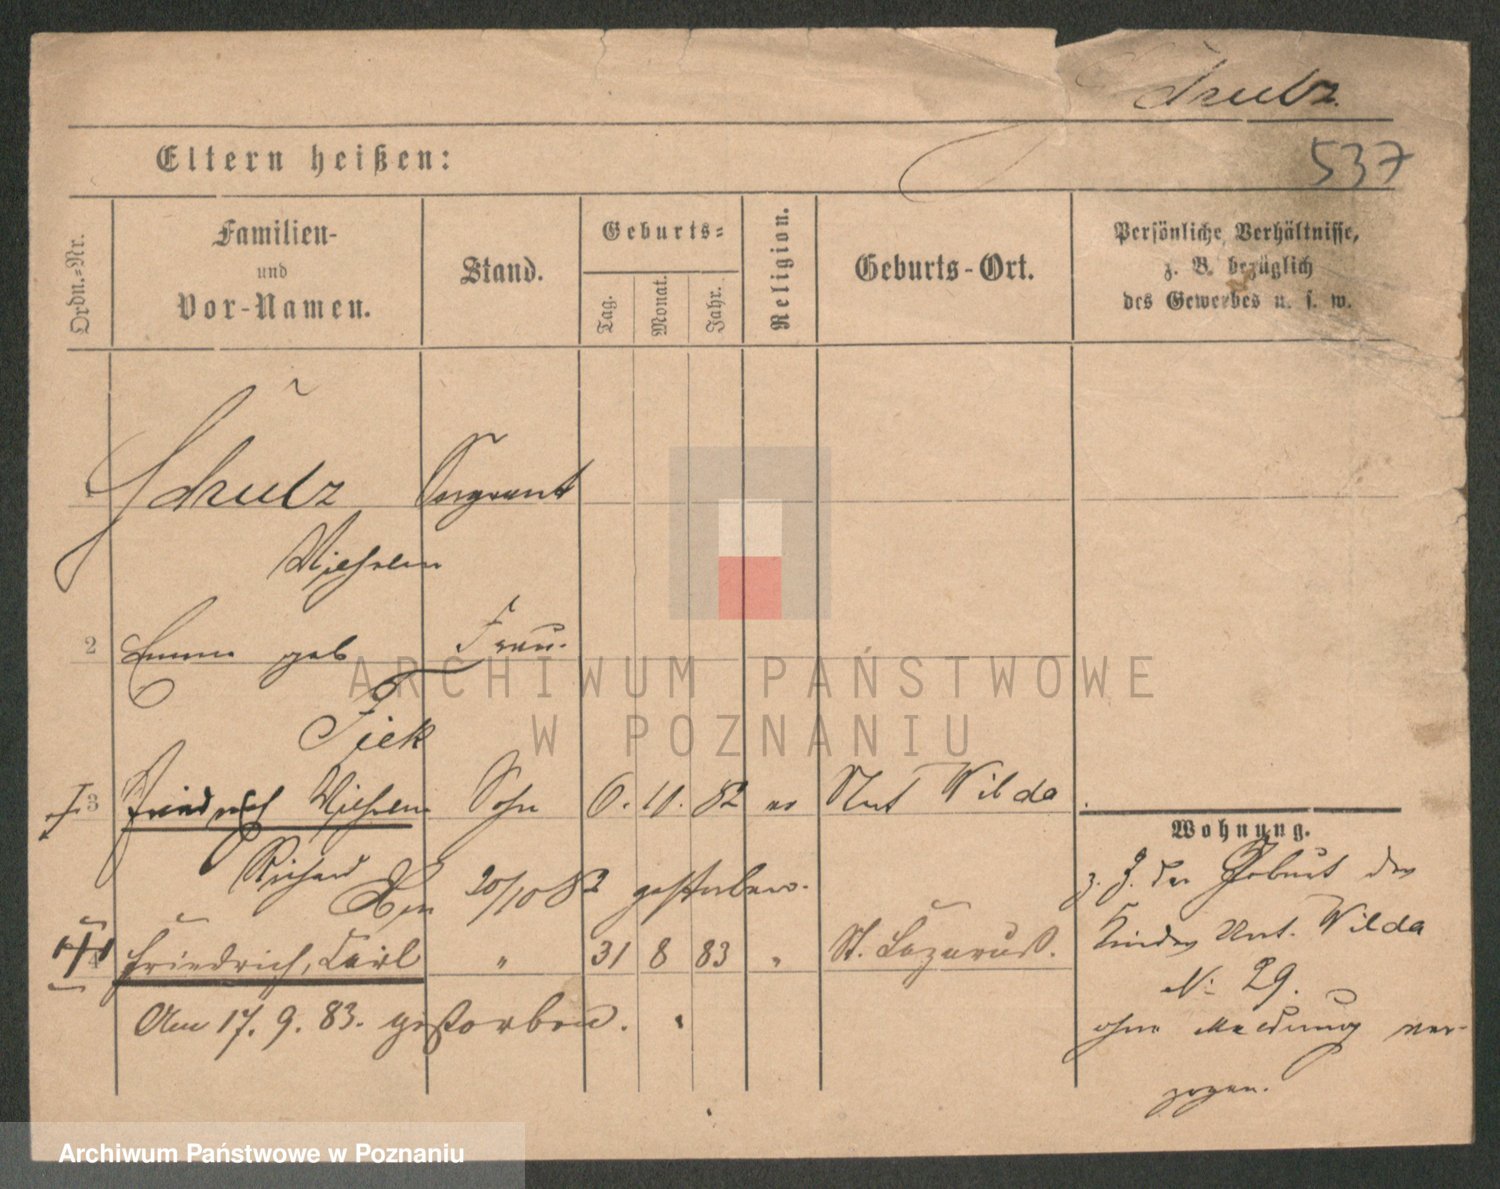 Schulz
537
Eltern heißen:
Ordn.-Nr.
Familien-
und
Vor-Namen.
Stand.
Geburts-
Tag.
Monat.
Jahr.
Religion.
Geburts-Ort.
Persönliche Verhältnisse,
z. B. bezüglich
des Gewerbes u. s. w.
Schulz Sergeant
Wilhelm
2 Emma geb Frau.
Fiek
3 Friedrich Wilhelm Sohn 6. 10. 82 ev Unt Wilda
Richard
Am 20/10 82 gestorben.
4 Friedrich, Carl " 31 8 83 " St. Lazarus.
Am 17. 9. 83. gestorben.
Wohnung.
z. Z. der Geburt des
Kindes Unt. Wilda
No 29.
ohne Meldung ver-
zogen.
ARCHIWUM PAŃSTWOWE
W POZNANIU
Archiwum Państwowe w Poznaniu